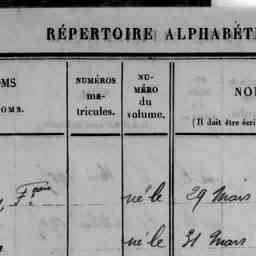 RÉPERTOIRE ALPHABÉT
OMS
OMS.
NUMÉROS
ma-
tricules.
NU-
MÉRO
du
volume.
NO
(Il doit être écri
Fçois né le 29 Mars
né le 31 Mars